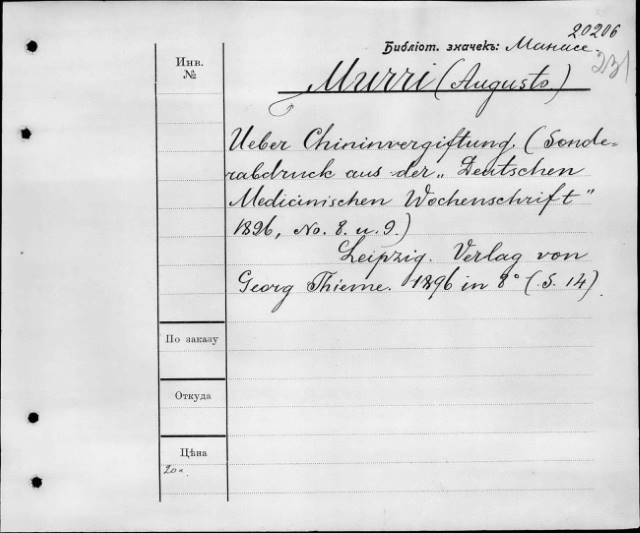 20206
Библіот. значекъ: Манасе.
231
Инв.
№
Murri (Augusto.)
Ueber Chininvergiftung. (Sonde-
rabdruck aus der „Deutschen
Medicinischen Wochenschrift"
1896, No. 8. u. 9.)
Leipzig. Verlag von
Georg Thieme. 1896 in 8° (S. 14)
По заказу
Откуда
Цѣна
20к.